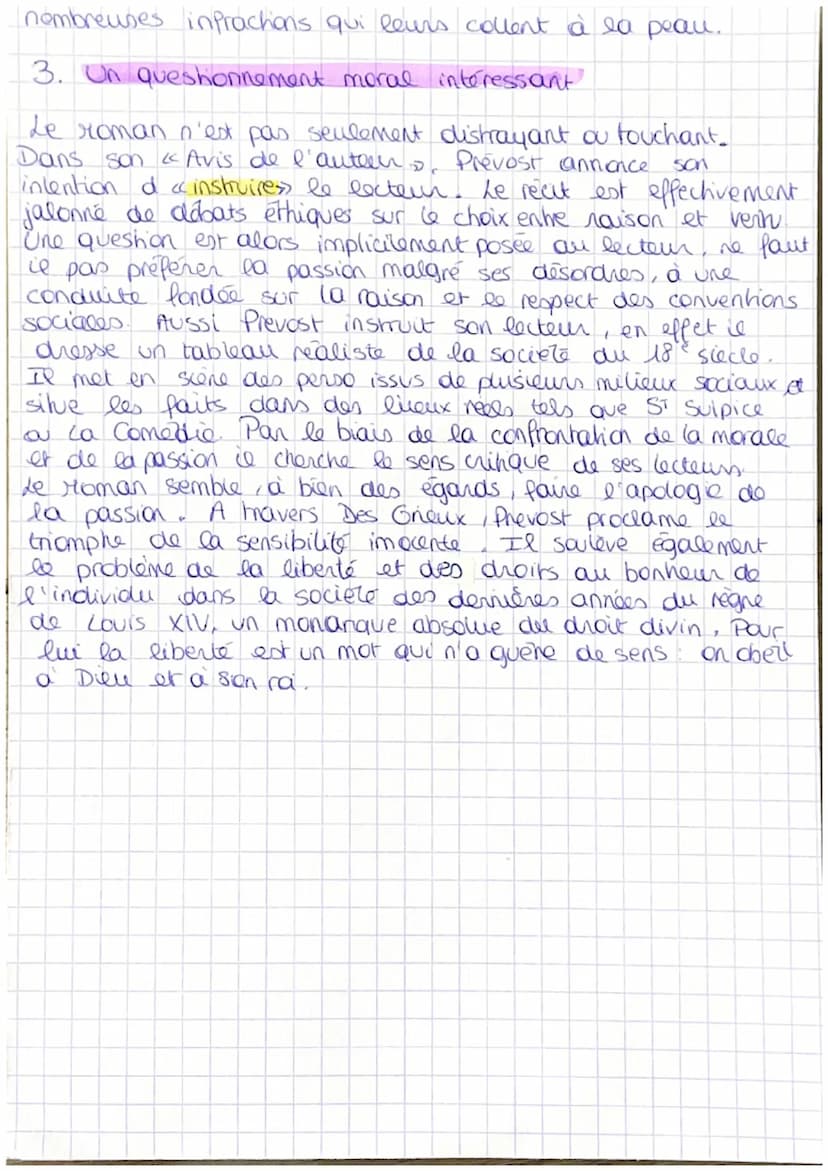 nombreuses infractions qui leurs collent à la peau.
3. Un questionnement moral intéressant
Le roman n'est pas seulement distrayant ou touchant.
Dans son « Avis de l'auteur », Prévost annonce son
intention d « instruire » le lecteur. Le récit est effectivement
jalonné de débats éthiques sur le choix entre raison et vertu.
Une question est alors implicitement posée au lecteur, ne faut
il pas préférer la passion malgré ses désordres, à une
conduite fondée sur la raison et le respect des conventions
sociales. Aussi Prevost instruit son lecteur, en effet il
dresse un tableau réaliste de la société du 18e siècle.
Il met en scène des perso issus de plusieurs milieux sociaux et
situe les faits dans des lieux réels tels que St Sulpice
ou La Comédie. Par le biais de la confrontation de la morale
et de la passion il cherche le sens critique de ses lecteurs.
Le roman semble, à bien des égards, faire l'apologie de
la passion. A travers Des Grieux, Prevost proclame le
triomphe de la sensibilité innocente. Il soulève également
le problème de la liberté et des droits au bonheur de
l'individu dans la société des dernières années du règne
de Louis XIV, un monarque absolue du droit divin, Pour
lui la liberté est un mot qui n'a guère de sens : on obeit
à Dieu et à son roi.